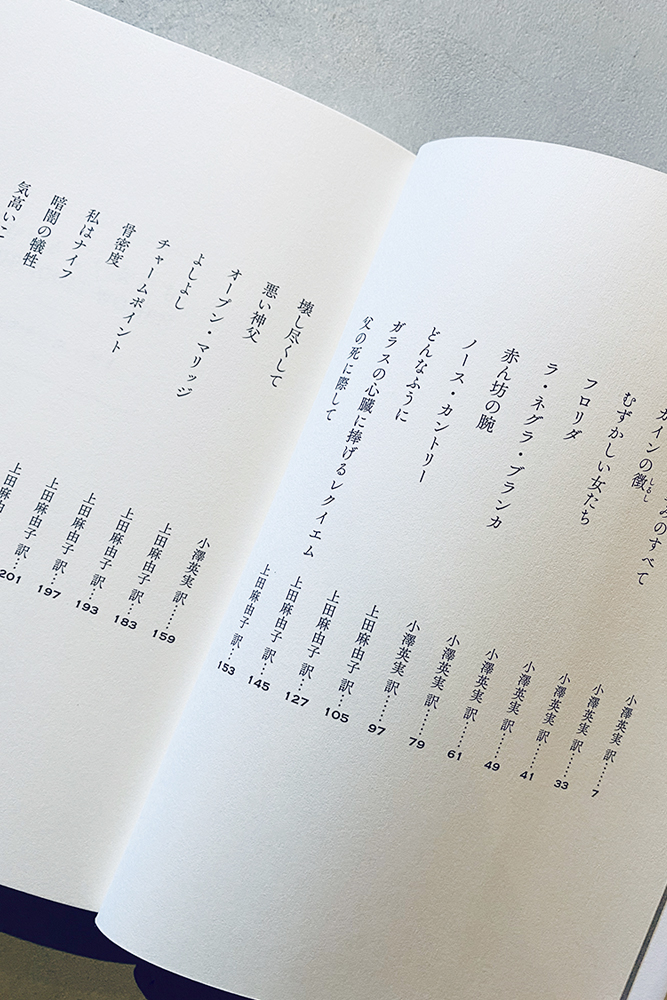 小澤英実 訳……7
みのすべて 小澤英実 訳……33
カインの徴 しるし 小澤英実 訳……41
むずかしい女たち 小澤英実 訳……49
フロリダ 小澤英実 訳……61
ラ・ネグラ・ブランカ 小澤英実 訳……79
赤ん坊の腕 小澤英実 訳……97
ノース・カントリー 上田麻由子 訳……105
どんなふうに 上田麻由子 訳……127
ガラスの心臓に捧げるレクイエム 上田麻由子 訳……145
父の死に際して 上田麻由子 訳……153
壊し尽くして 小澤英実 訳……159
悪い神父 上田麻由子 訳……183
オープン・マリッジ 上田麻由子 訳……193
よしよし 上田麻由子 訳……197
チャームポイント 上田麻由子 訳……201
骨密度 上田麻由
私はナイフ
暗闇の犠牲
気高いこ